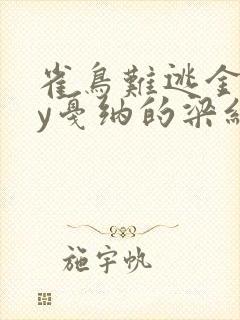 雀鳥難逃金
y戛纳的梁
施宇帆